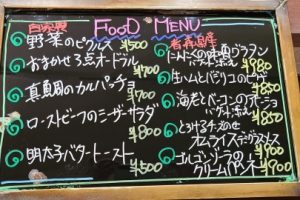 FOOD MENU
自家製
野菜のピクルス ¥500
おまかせ3点オードブル ¥700
真鯛のカルパッチョ ¥700
ローストビーフのシーザーサラダ ¥800
明太子バタートースト ¥500
青森県産
グラタン
バゲット添え ¥980
生ハムとバジリコのピザ ¥850
海老とベーコンのアヒージョ
バゲット添え ¥850
とろけるチーズのせ
オムライスデミグラスソース ¥900
ゴルゴンゾーラの
クリームペンネ ¥900